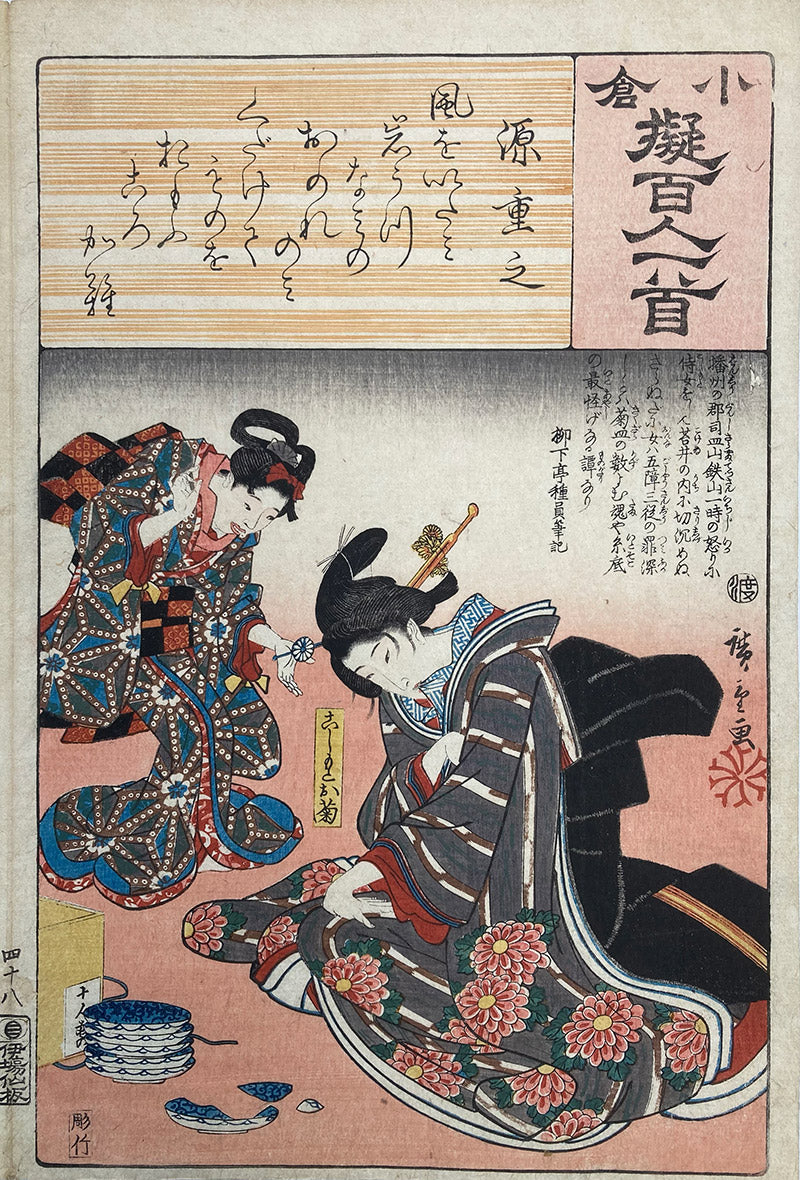 小倉
擬百人一首
源重之
風をいたミ
岩うつ
なミの
おのれのミ
くだけて
ものを
おもふ
ころ
か難
播州の郡司皿山鉄山一時の怒りに
侍女を 苔井の内に切沈めぬ
さらぬだに女ハ五障三従の罪深
し ハ菊皿の数よむ魂や糸底
の最怪げなる譚なり
柳下亭種員筆記
渡
廣重画
こしもとお菊
十人前
四十八
伊場仙板
彫竹